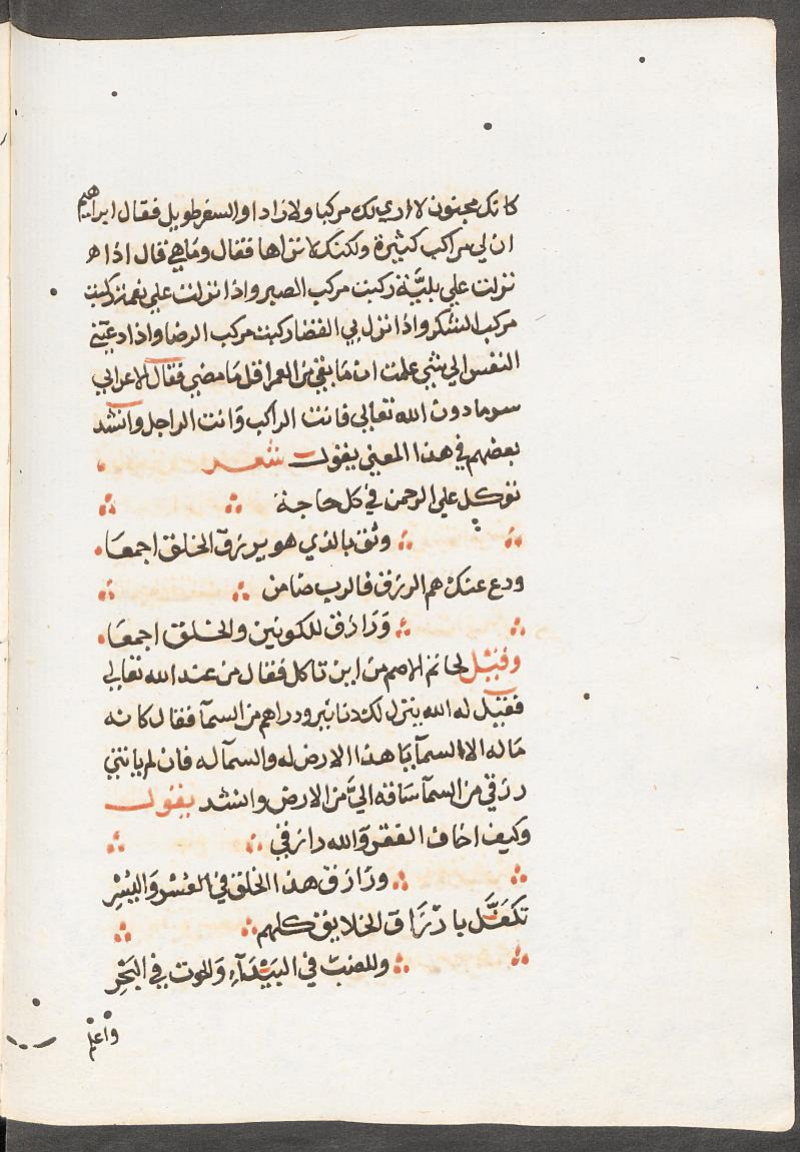 كانك مجنون لا ارى لك مركبا ولا زادا والسفر طويل فقال ابراهيم
ان لي مراكب كثيرة ولكنك لا تراها فقال وما هي قال اذا
نزلت علي بليّة ركبت مركب الصبر واذا نزلت علي نعمة ركبت
مركب الشكر واذا نزل بي القضا ركبت مركب الرضا واذا دعتني
النفس الي شي علمت ان ما بقي من العمر اقل مما مضي فقال الاعرابي
سر مادون الله تعالي فانت الراكب وانت الراجل وانشد
بعضهم في هذا المعني يقول شعر
توكل علي الرحمن في كل حاجة
وثق بالذي هو يرزق الخلق اجمعا
ودع عنك هم الرزق فالرب ضامن
ورازق للكونين والخلق اجمعا
وقيل لحاتم الاصم من اين تاكل فقال من عند الله تعالي
فقيل له الله ينزل لك دنانير ودراهم من السمآ فقال كانه
ما له الا السمآ يا هذا الارض له والسمآ له فان لم ياتني
رزقي من السمآ ساقه اليّ من الارض وانشد يقول
وكيف اخاف الفقر والله رازقي
ورازق هذا الخلق في العسر واليسر
تكفّل بارزاق الخلايق كلهم
وللضبّ في البيدآء والحوت في البحر
واعلم